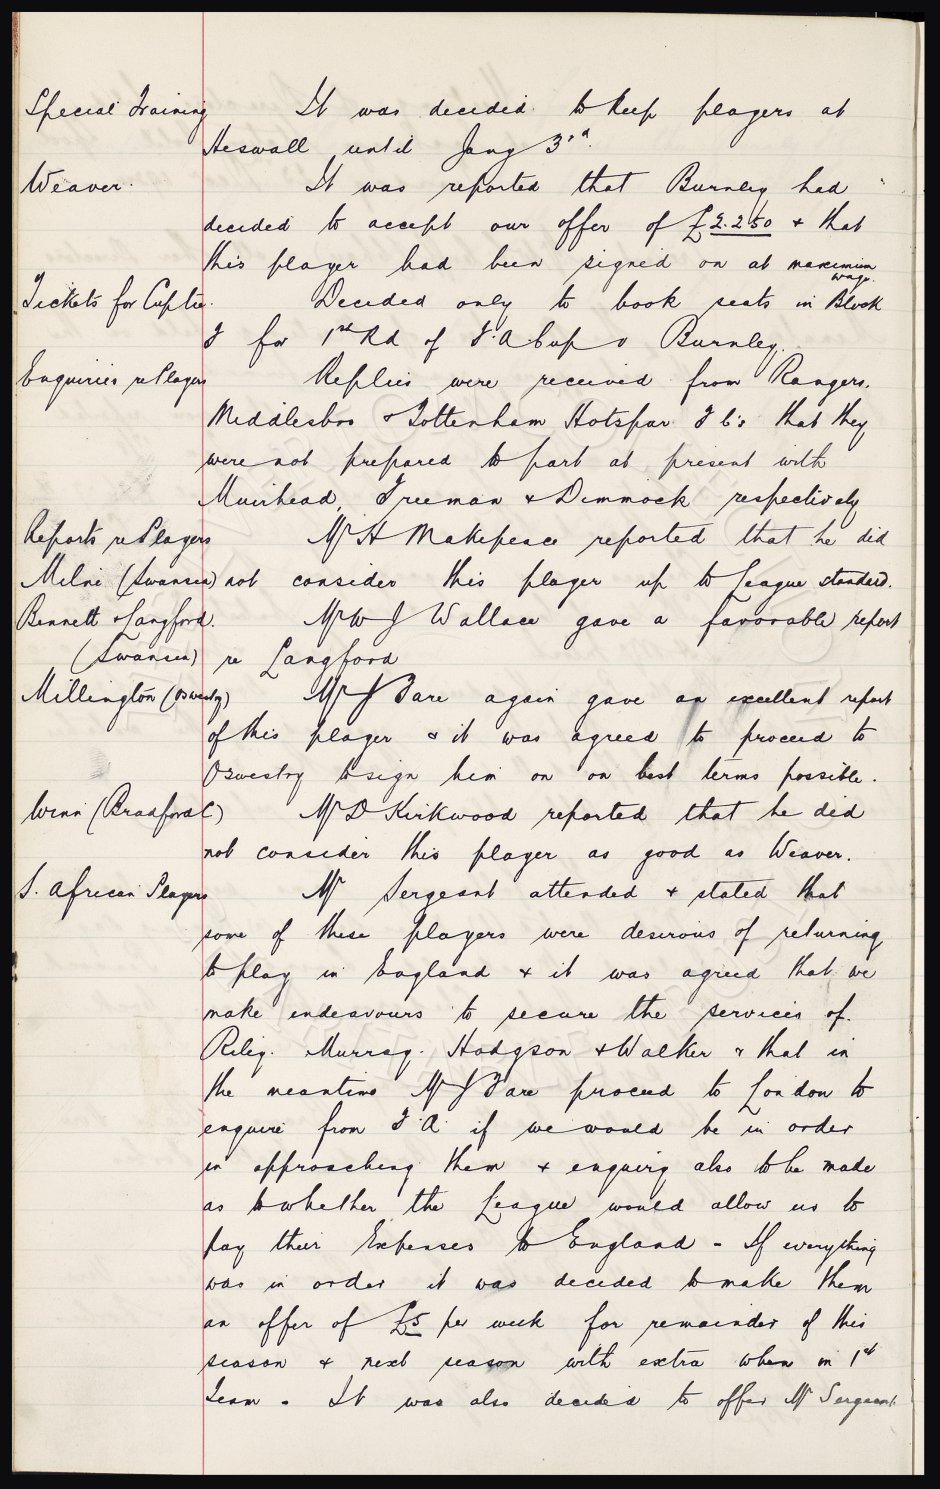 Special Training It was decided to keep players at
Heswall until Jany 3rd.
Weaver. It was reported that Burnley had
decided to accept our offer of £2.250 & that
this player had been signed on at maximum
wage.
Tickets for Cuptie. Decided only to book seats in Block
J for 1st Rd of F.A Cup v Burnley.
Enquiries re Players Replies were received from Rangers.
Middlesbro & Tottenham Hotspur F C's that they
were not prepared to part at present with
Muirhead, Freeman & Dimmock respectively
Reports re Players Mr H Makepeace reported that he did
Milne (Swansea) not consider this player up to League standard.
Bennett & Langford. Mr W J Wallace gave a favorable report
(Swansea) re Langford
Millington (Oswestry) Mr J Fare again gave an excellent report
of this player & it was agreed to proceed to
Oswestry to sign him on on best terms possible.
Winn (Bradford C) Mr D Kirkwood reported that he did
not consider this player as good as Weaver.
S. African Players Mr Sergeant attended & stated that
some of these players were desirous of returning
to play in England & it was agreed that we
make endeavours to secure the services of.
Riley. Murray. Hodgson & Walker & that in
the meantime Mr J Fare proceed to London to
enquire from F.A. if we would be in order
in approaching them & enquiry also to be made
as to whether the League would allow us to
pay their Expenses to England - If everything
was in order it was decided to make them
an offer of £5 per week for remainder of this
season & next season with extra when in 1st
Team. It was also decided to offer Mr Sergeant